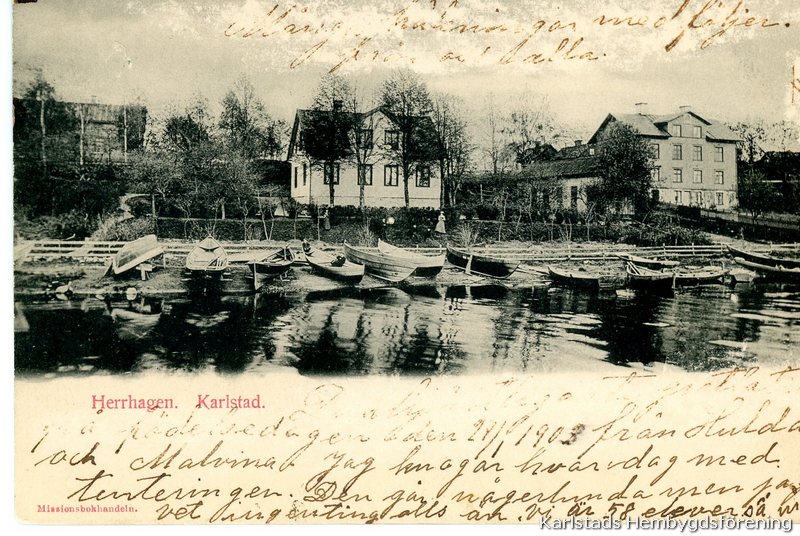 Många hälsningar med följer.
från oss alla.
Herrhagen. Karlstad.
på födelsedagen den 21/9 1903 från Hulda
och Malvina. Jag knogar hvar dag med
tenteringen. Den går någerlunda men jag
vet ingenting alls än. Vi är 58 elever så v
Missionsbokhandeln.
Karlstads Hembygdsförening